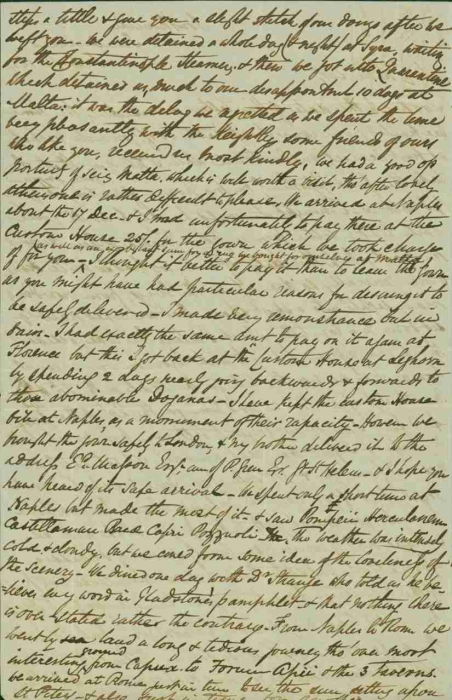 steps a little & give you a slight sketch of our doings after we
left you - We were detained a whole day (& night) at Syra, waiting
for the Constantinople Steamer, & then we got into Quarantine
which detained us, much to our disappointment 10 days at
Malta; it was the delay we regretted as we spent the time
very pleasantly with the some friends of ours
who like you, received us most kindly, we had a good op
portunity of seeing Malta, which is well worth a visit, tho after travel
ones is rather difficult to please. We arrived at Naples
about the 17 Dec. - & I had unfortunately to pay there at the
Custom House for the gown which we took charge
as well as on for we bought for ourselves at Malta
of for you - I thought it better to pay it than to leave the gown
as you might have had particular reasons for desiring it to
be safely delivered - I made every remonstrance but in
vain - I had exactly the same amt to pay on it again at
Florence but this I got back at the Custom House at Leghorn
by spending 2 days nearly going backwards & forwards to
those abominable Doganas - I have kept the Custom House
bill at Naples, as a monument of their rapacity - However we
brought the gown safely to London, & my brother delivered it to the
address Esq. of P. Esq. St. Helens - & I hope you
have heard of its safe arrival - We spent only a short time at
Naples but made the most of it - & saw Pompeii Herculaneum
Castellamare Baeae Capri Pozzuoli the weather was intensely
cold & cloudy, but we cd form some idea of the loveliness of
the Scenery - We dined one day with Dr Strange who told us he be
lieves every word in Gladstone's pamphlet & that nothing there
is over stated rather the contrary. From Naples to Rome we
went by land a long & tedious journey tho over most
interesting ground from Capua to Forum Appii & the 3 Taverns.
We arrived at Rome just in time to see the sun setting upon
St Peters - & also